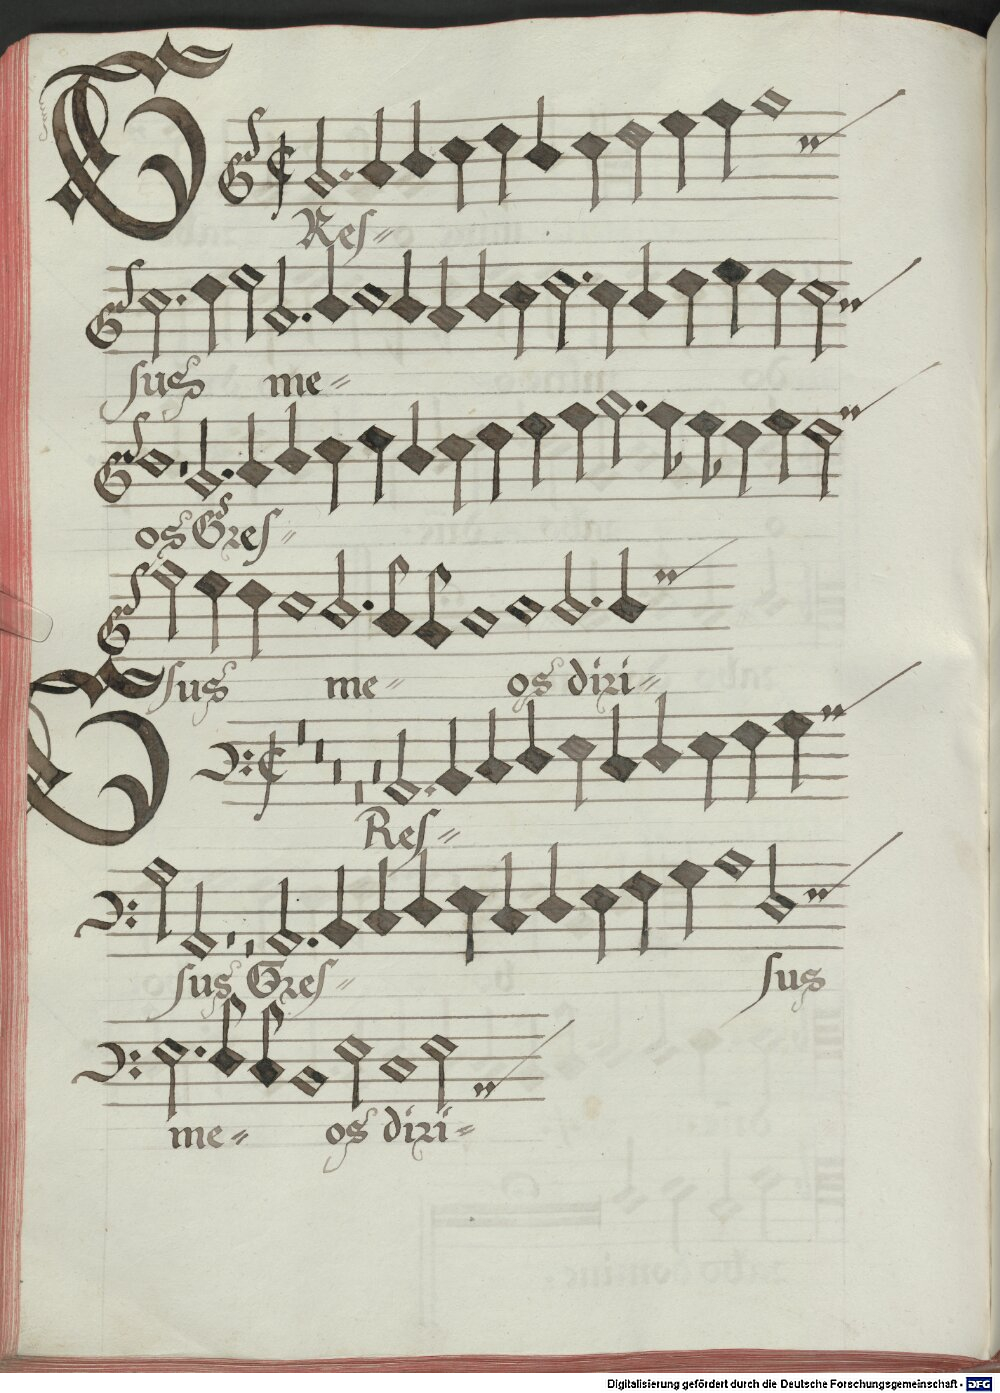 GRes=
sus me=
os Gres=
sus me= os diri=
GRes=
sus Gres= sus
me= os diri=
Digitalisierung gefördert durch die Deutsche Forschungsgemeinschaft - DFG